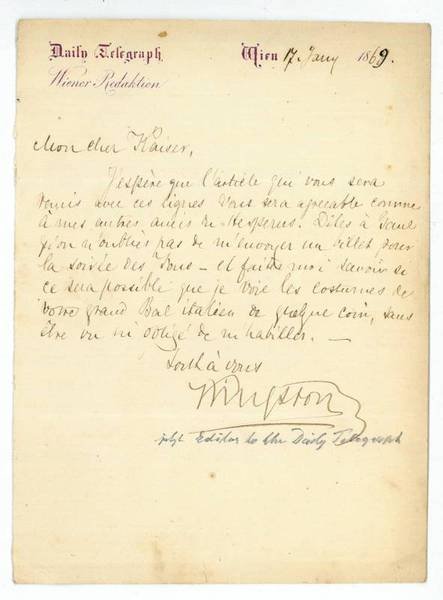 Daily Telegraph
Wiener Redaktion
Wien 17. Jany 1869.
Mon cher Kaiser,
J'espère que l'article qui vous sera
remis avec ces lignes vous sera agréable comme
à mes autres amis du Hesperus. Dites à
qu'on n'oublie pas de m'envoyer un billet pour
la soirée des — et faites moi savoir si
ce sera possible que je voie les costumes de
votre grand Bal italien de quelque coin, sans
être vu ni obligé de m'habiller. —
Tout à vous
Editor to the Daily Telegraph